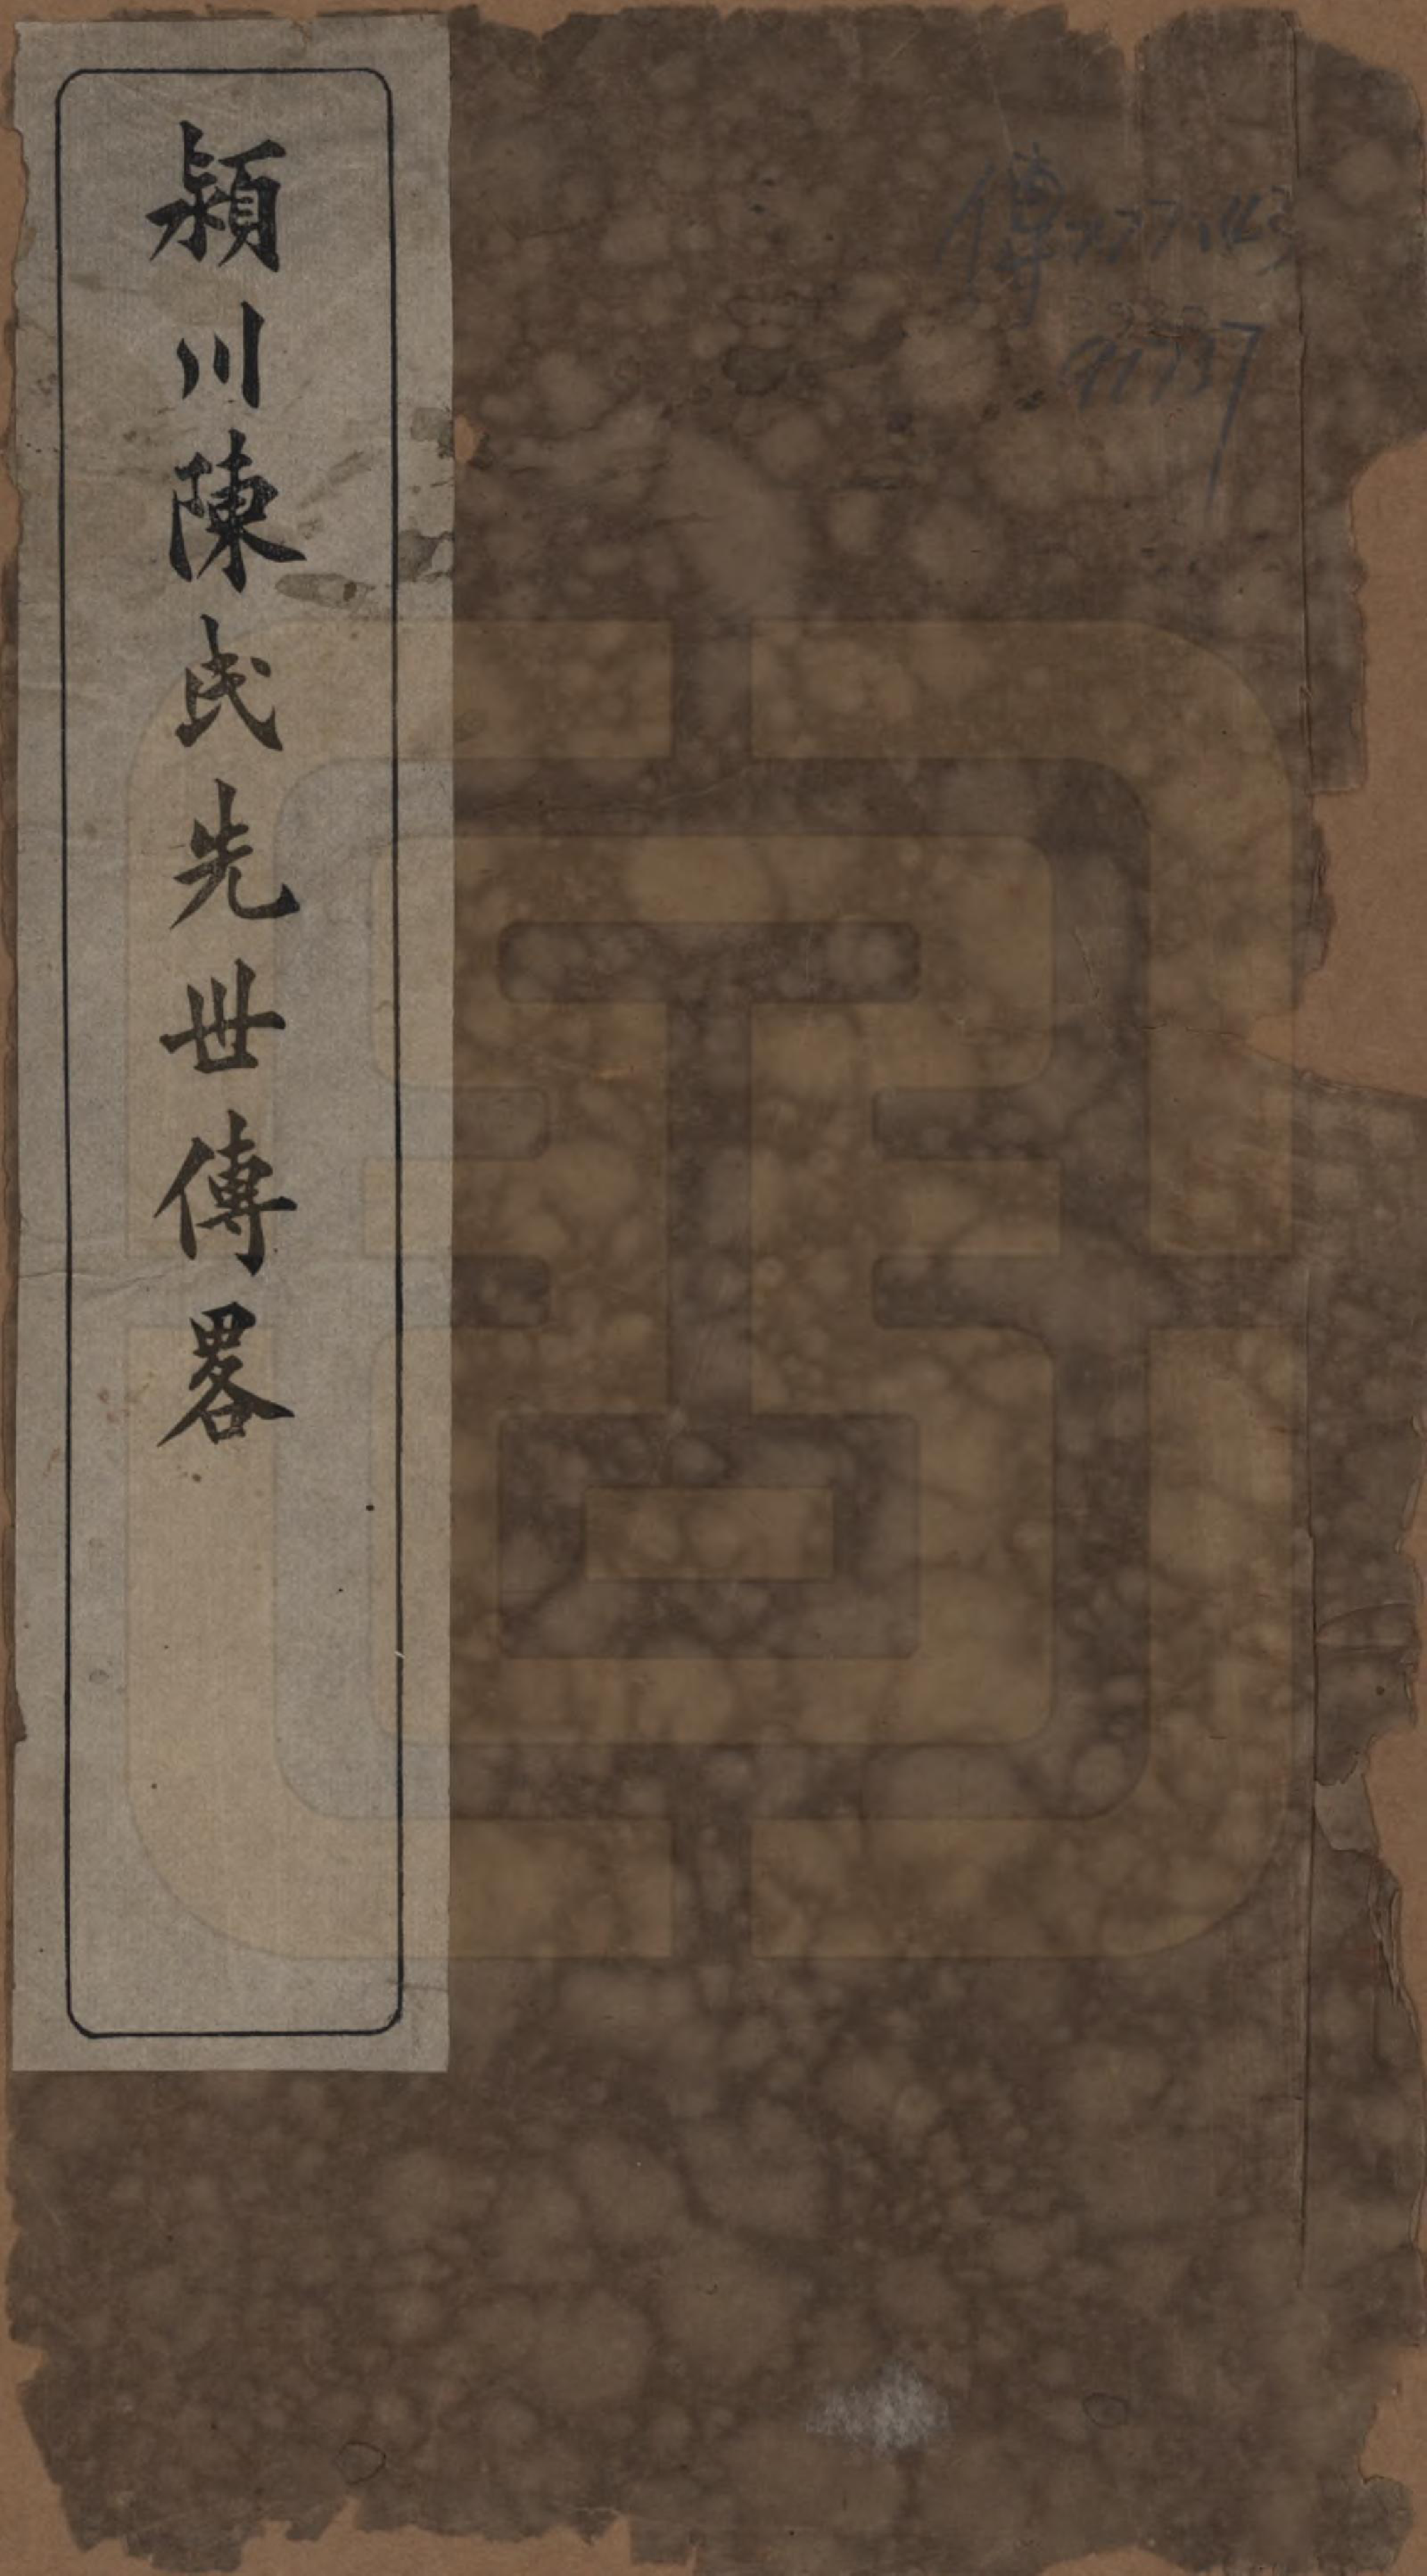 潁川陳氏先世傳畧
傳